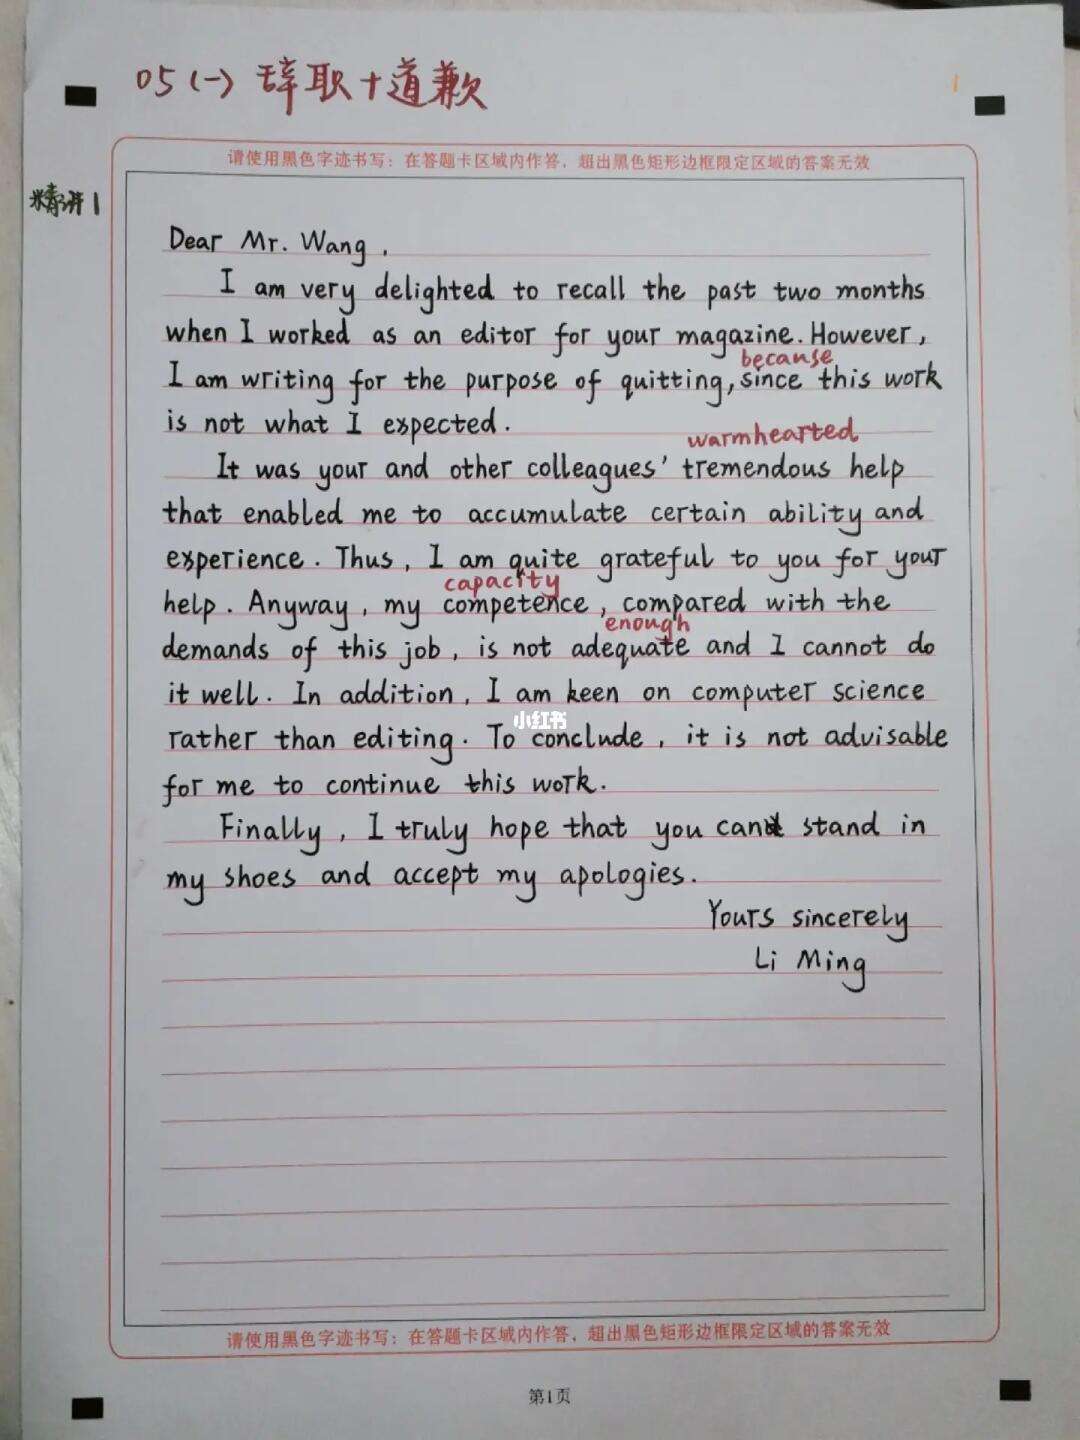 05(一) 辞职+道歉
请使用黑色字迹书写：在答题卡区域内作答，超出黑色矩形边框限定区域的答案无效
精讲1
Dear Mr. Wang,
I am very delighted to recall the past two months
when I worked as an editor for your magazine. However,
because
I am writing for the purpose of quitting, since this work
is not what I expected.
warmhearted
It was your and other colleagues' tremendous help
that enabled me to accumulate certain ability and
experience. Thus, I am quite grateful to you for your
capacity
help. Anyway, my competence, compared with the
enough
demands of this job, is not adequate and I cannot do
it well. In addition, I am keen on computer science
小红书
rather than editing. To conclude, it is not advisable
for me to continue this work.
Finally, I truly hope that you can stand in
my shoes and accept my apologies.
Yours sincerely
Li Ming
请使用黑色字迹书写：在答题卡区域内作答，超出黑色矩形边框限定区域的答案无效
第1页